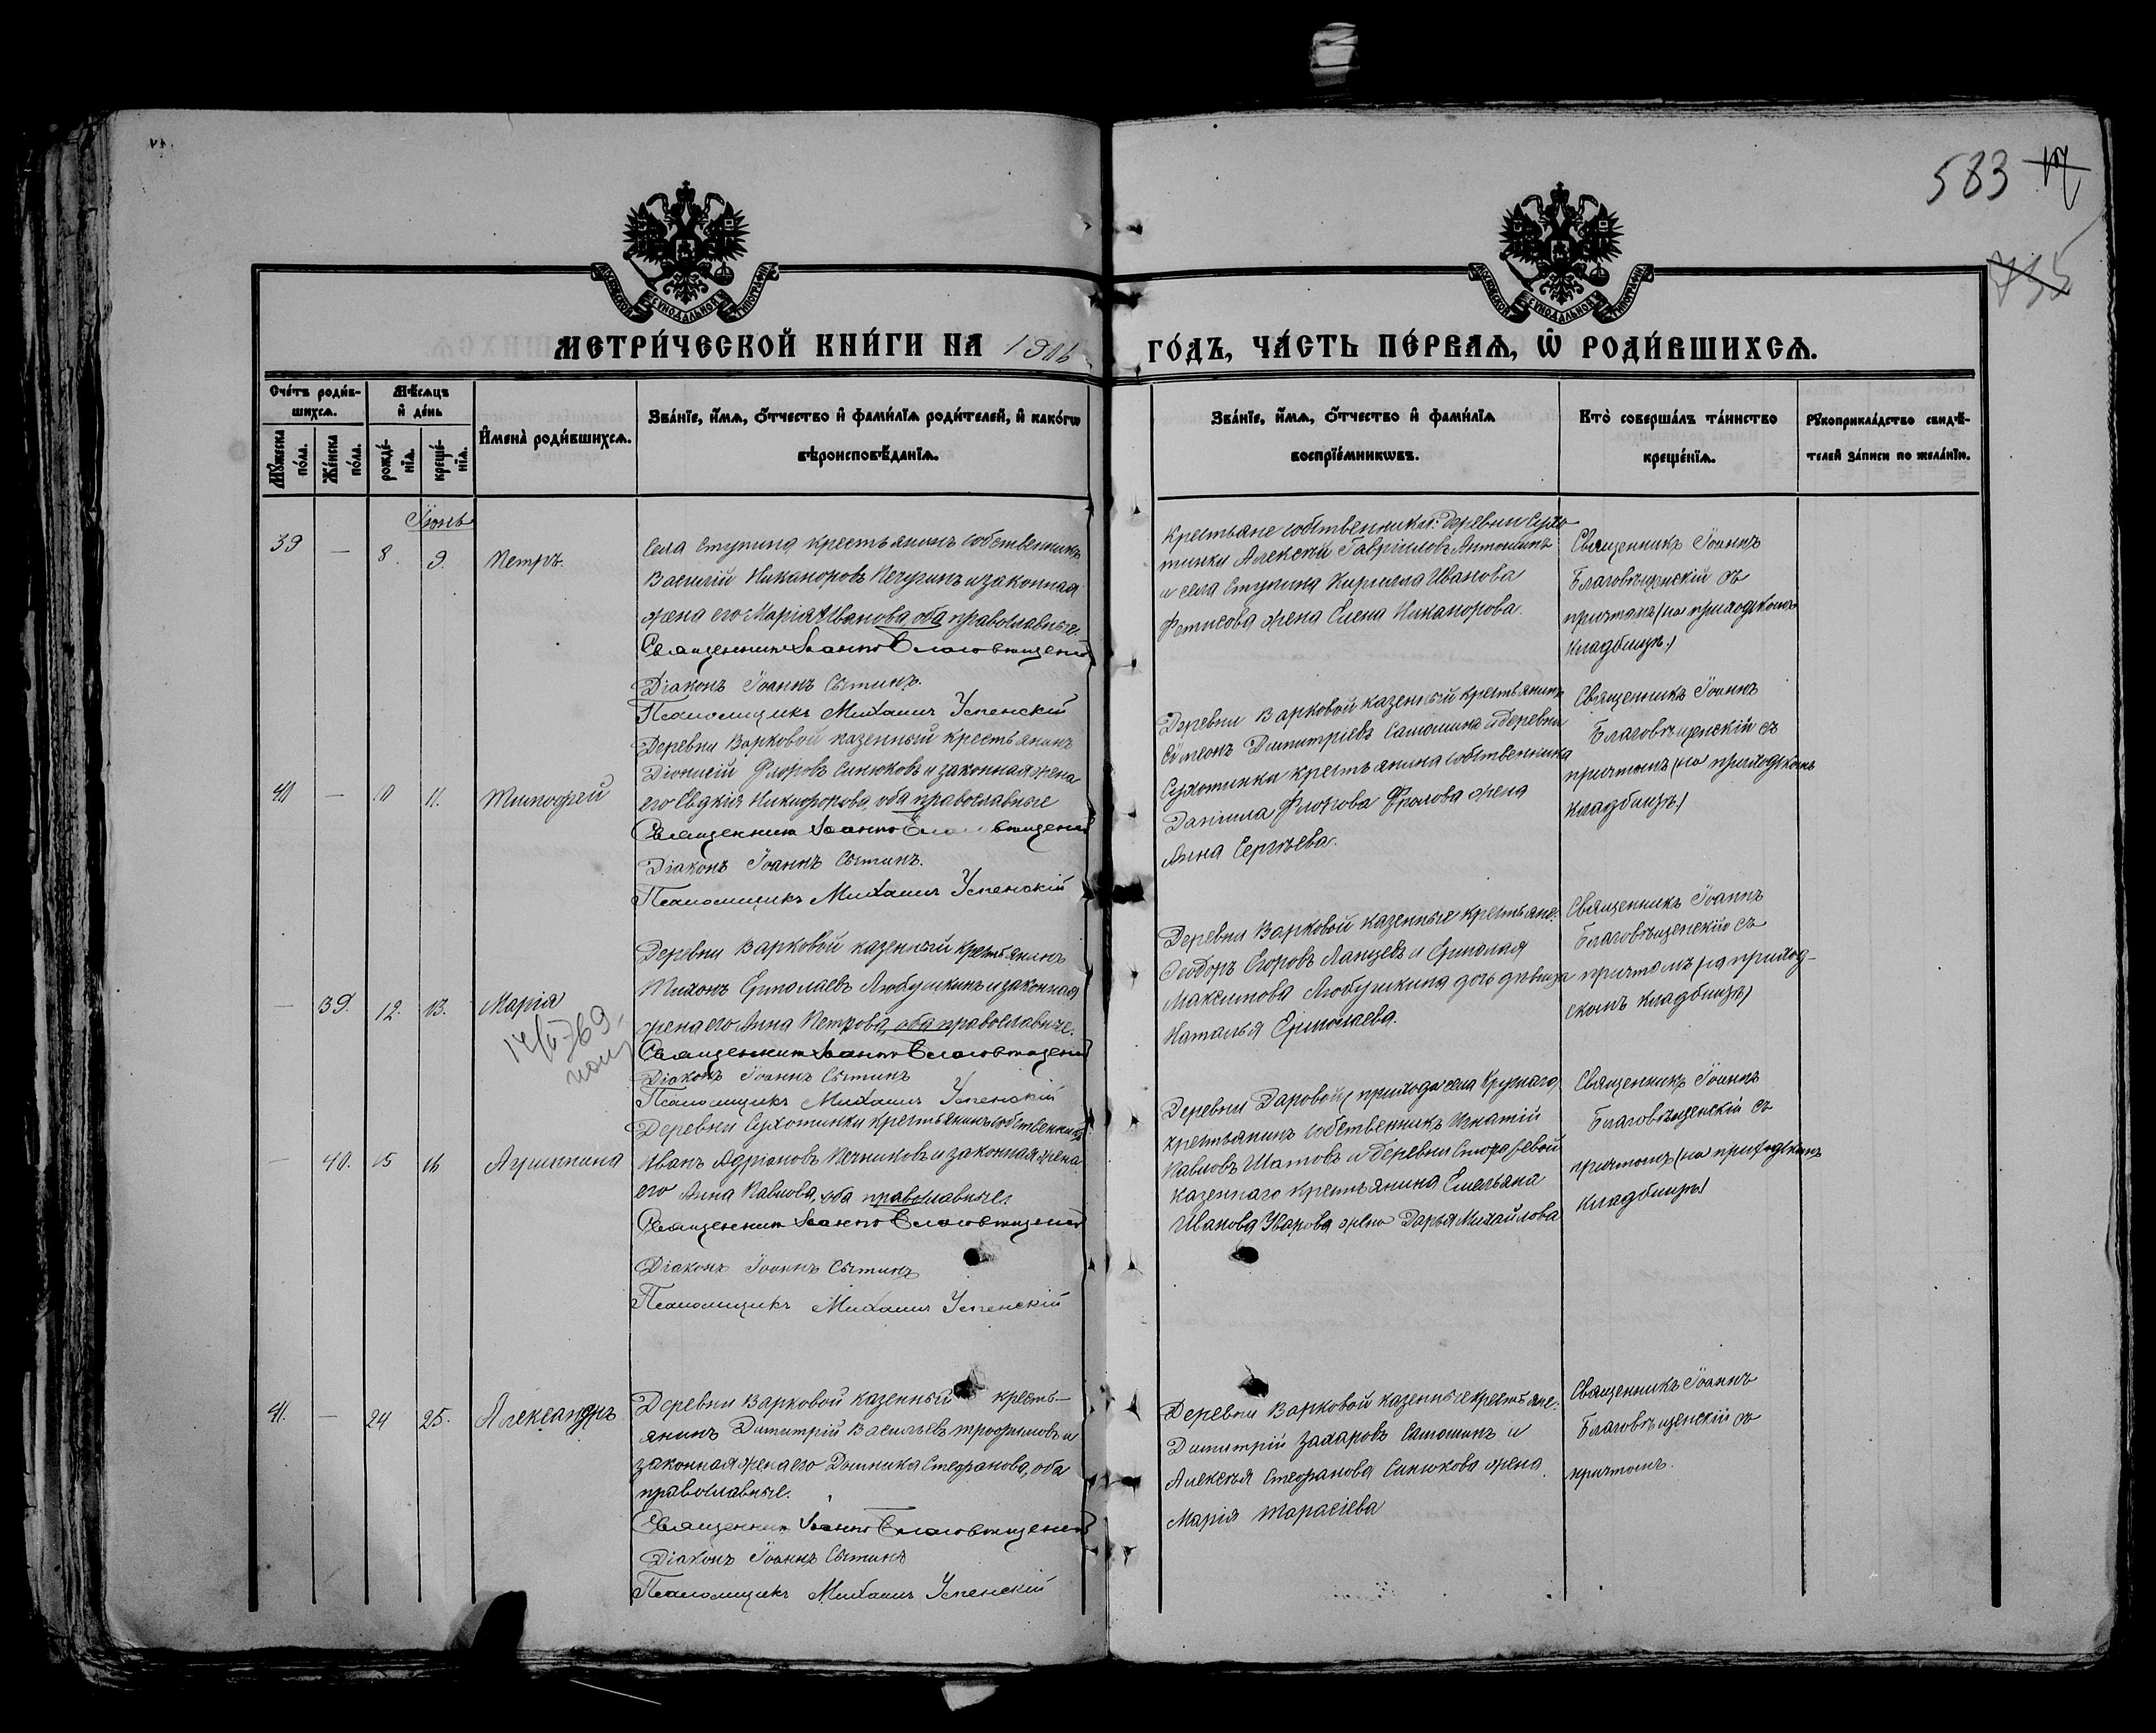 583
МЕТРИ́ЧЕСКОЙ КНИ́ГИ НА 1906
ГО́ДЪ, ЧА́СТЬ ПЕ́РВАѦ, Ѡ҆ РОДИ́ВШИХСѦ.
Сче́тъ роди́в-
шихсѧ.
Мꙋ́жеска по́ла.
Же́нска по́ла.
Мѣ́сѧцъ
и҆ де́нь
рожде́нїѧ.
креще́нїѧ.
И҆мена̀ роди́вшихсѧ.
Зва́нїе, и҆́мѧ, ѻ҆́тчество и҆ фами́лїѧ роди́телей, и҆ како́гѡ
вѣроисповѣ́данїѧ.
Зва́нїе, и҆́мѧ, ѻ҆́тчество и҆ фами́лїѧ
воспрїе́мникѡвъ.
Кто̀ соверша́лъ та́инство
креще́нїѧ.
Рꙋкоприкла́дство свидѣ́-
телей за́писи по жела́нїю.
Іюнь
39 — 8. 9. Петръ.
Села Ступина крестьянинъ собственникъ
Василій Никаноровъ Печугинъ и законная
жена его Марія Иванова, оба православные.
Священникъ Іоаннъ Благовѣщенскій
Діаконъ Іоаннъ Сытинъ.
Псаломщикъ Михаилъ Успенскій
Крестьяне собственники: деревни Сухо-
тинки Алексѣй Гавріиловъ Антошинъ
и села Ступина Кирилла Иванова
Фетисова жена Елена Никанорова.
Священникъ Іоаннъ
Благовѣщенскій съ
причтомъ (на приходскомъ
кладбищѣ.)
40 — 10 11. Тимофей
Деревни Варковой казенный крестьянинъ
Діонисій Флоровъ Синюковъ и законная жена
его Евдкія Никифорова оба православные
Священникъ Іоаннъ Благовѣщенскій
Діаконъ Іоаннъ Сытинъ.
Псаломщикъ Михаилъ Успенскій
Деревни Варковой казенный крестьянинъ
Сѵмеонъ Димитріевъ Самошинъ и деревни
Сухотинки крестьянина собственника
Даніила Флорова Фролова жена
Анна Сергѣева.
Священникъ Іоаннъ
Благовѣщенскій съ
причтомъ (на приходскомъ
кладбищѣ.)
— 39. 12. 13. Марія
Деревни Варковой казенный крестьянинъ
Тихонъ Ермолаевъ Любушкинъ и законная
жена его Анна Петрова, оба православные.
Священникъ Іоаннъ Благовѣщенскій
Діаконъ Іоаннъ Сытинъ
Псаломщикъ Михаилъ Успенскій
Деревни Варковой казенные крестьяне:
Ѳеодоръ Егоровъ Ланцевъ и Ермолая
Максимова Любушкина дочь дѣвица
Наталья Ермолаева.
Священникъ Іоаннъ
Благовѣщенскій съ
причтомъ (на приход-
скомъ кладбищѣ)
— 40. 15 16 Агриппина
Деревни Сухотинки крестьянинъ собственникъ
Иванъ Адріановъ Печниковъ и законная жена
его Анна Павлова, оба православные.
Священникъ Іоаннъ Благовѣщенскій
Діаконъ Іоаннъ Сытинъ
Псаломщикъ Михаилъ Успенскій
Деревни Даровой (прихода села Круглаго)
крестьянинъ собственникъ Игнатій
Павловъ Шатовъ и деревни
казеннаго крестьянина Емельяна
Иванова Уварова жена Дарья Михайлова
Священникъ Іоаннъ
Благовѣщенскій съ
причтомъ (на приходскомъ
кладбищѣ)
41. — 24 25. Александръ
Деревни Варковой казенный кресть-
янинъ Димитрій Васильевъ Трофимовъ и
законная жена его Домника Стефанова, оба
православные.
Священникъ Іоаннъ Благовѣщенскій
Діаконъ Іоаннъ Сытинъ
Псаломщикъ Михаилъ Успенскій
Деревни Варковой казенные крестьяне:
Димитрій Захаровъ Самошинъ и
Алексѣя Стефанова Синюкова жена
Марія Тарасіева
Священникъ Іоаннъ
Благовѣщенскій съ
причтомъ.